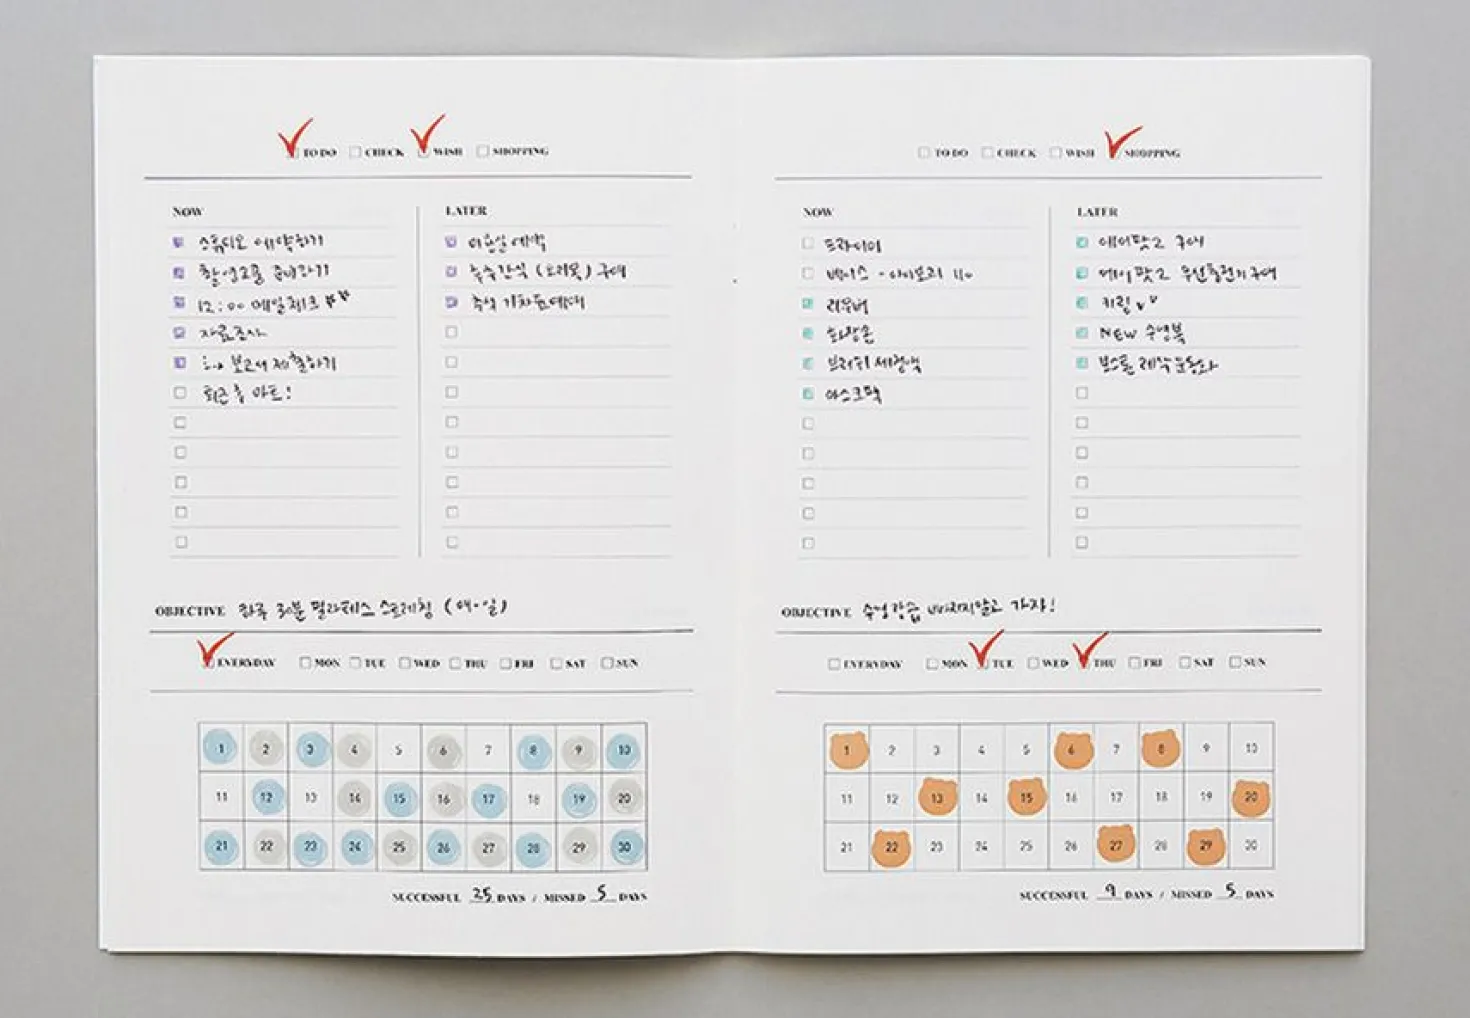 TO DO CHECK WISH SHOPPING
NOW
스튜디오 예약하기
촬영소품 준비하기
12:00 메일체크
자료조사
보고서 제출하기
퇴근 후 마트!
LATER
미용실 예약
추석 기차표예매
OBJECTIVE 하루 30분 필라테스 스트레칭 (매일)
EVERYDAY MON TUE WED THU FRI SAT SUN
1 2 3 4 5 6 7 8 9 10
11 12 13 14 15 16 17 18 19 20
21 22 23 24 25 26 27 28 29 30
SUCCESSFUL 25 DAYS / MISSED 5 DAYS
TO DO CHECK WISH SHOPPING
NOW
드라이어
아이보리 110
리무버
화장솜
브러쉬 세정액
마스크팩
LATER
에어팟2 구매
에어팟2 무선충전기 구매
키링
NEW 수영복
OBJECTIVE 수영강습 빠지지말고 가자!
EVERYDAY MON TUE WED THU FRI SAT SUN
1 2 3 4 5 6 7 8 9 10
11 12 13 14 15 16 17 18 19 20
21 22 23 24 25 26 27 28 29 30
SUCCESSFUL 9 DAYS / MISSED 5 DAYS